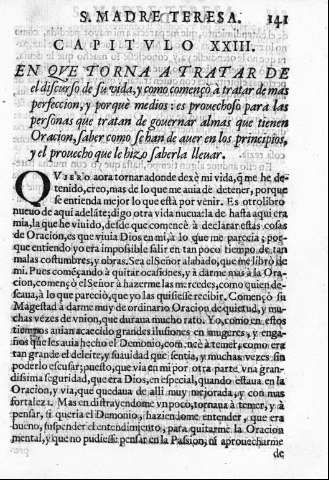 S. MADRE TERESA. 141
CAPITVLO XXIII.
EN QVE TORNA A TRATAR DE
el discurso de su vida, y como començò à tratar de mas
perfeccion, y porquè medios: es prouechoso para las
personas que tratan de governar almas que tienen
Oracion, saber como se han de auer en los principios,
y el prouecho que le hizo saberla lleuar.
QVIERO aora tornar adonde dexè mi vida, q̃ me he de-
tenido, creo, mas de lo que me auia de detener, porque
se entienda mejor lo que està por venir. Es otro libro
nueuo de aqui adelãte; digo otra vida nueua: la de hasta aqui era
mia, la que he viuido, desde que comencè à declarar estas cosas
de Oracion, es que viuia Dios en mi, à lo que me parecia; por-
que entiendo yo era imposible salir en tan poco tiempo de tan
malas costumbres, y obras. Sea el Señor alabado, que me librò de
mi. Pues comẽçando à quitar ocasiones, y à darme mas à la Ora-
cion, començò el Señor à hazerme las mercedes, como quien de-
seaua, à lo que pareciò, que yo las quisiesse recibir. Començò su
Magestad à darme muy de ordinario Oracion de quietud, y mu-
chas vezes de vnion, que duraua mucho rato. Yo, como en estos
tiempos auian acaecido grandes ilusiones en mugeres, y enga-
ños que les auia hecho el Demonio, comencè à temer, como era
tan grande el deleite, y suauidad que sentia, y muchas vezes sin
poderlo escusar; puesto, que via en mi por otra parte vna gran-
dissima seguridad, que era Dios, en especial, quando estaua en la
Oracion, y via, que quedaua de alli muy mejorada, y con mas
fortaleza. Mas en distrayendome vn poco, tornaua à temer, y à
pensar, si queria el Demonio, haziendome entender, que era
bueno, suspender el entendimiento, para quitarme la Oracion
mental, y que no pudiesse pensar en la Passion, ni aprouecharme
de